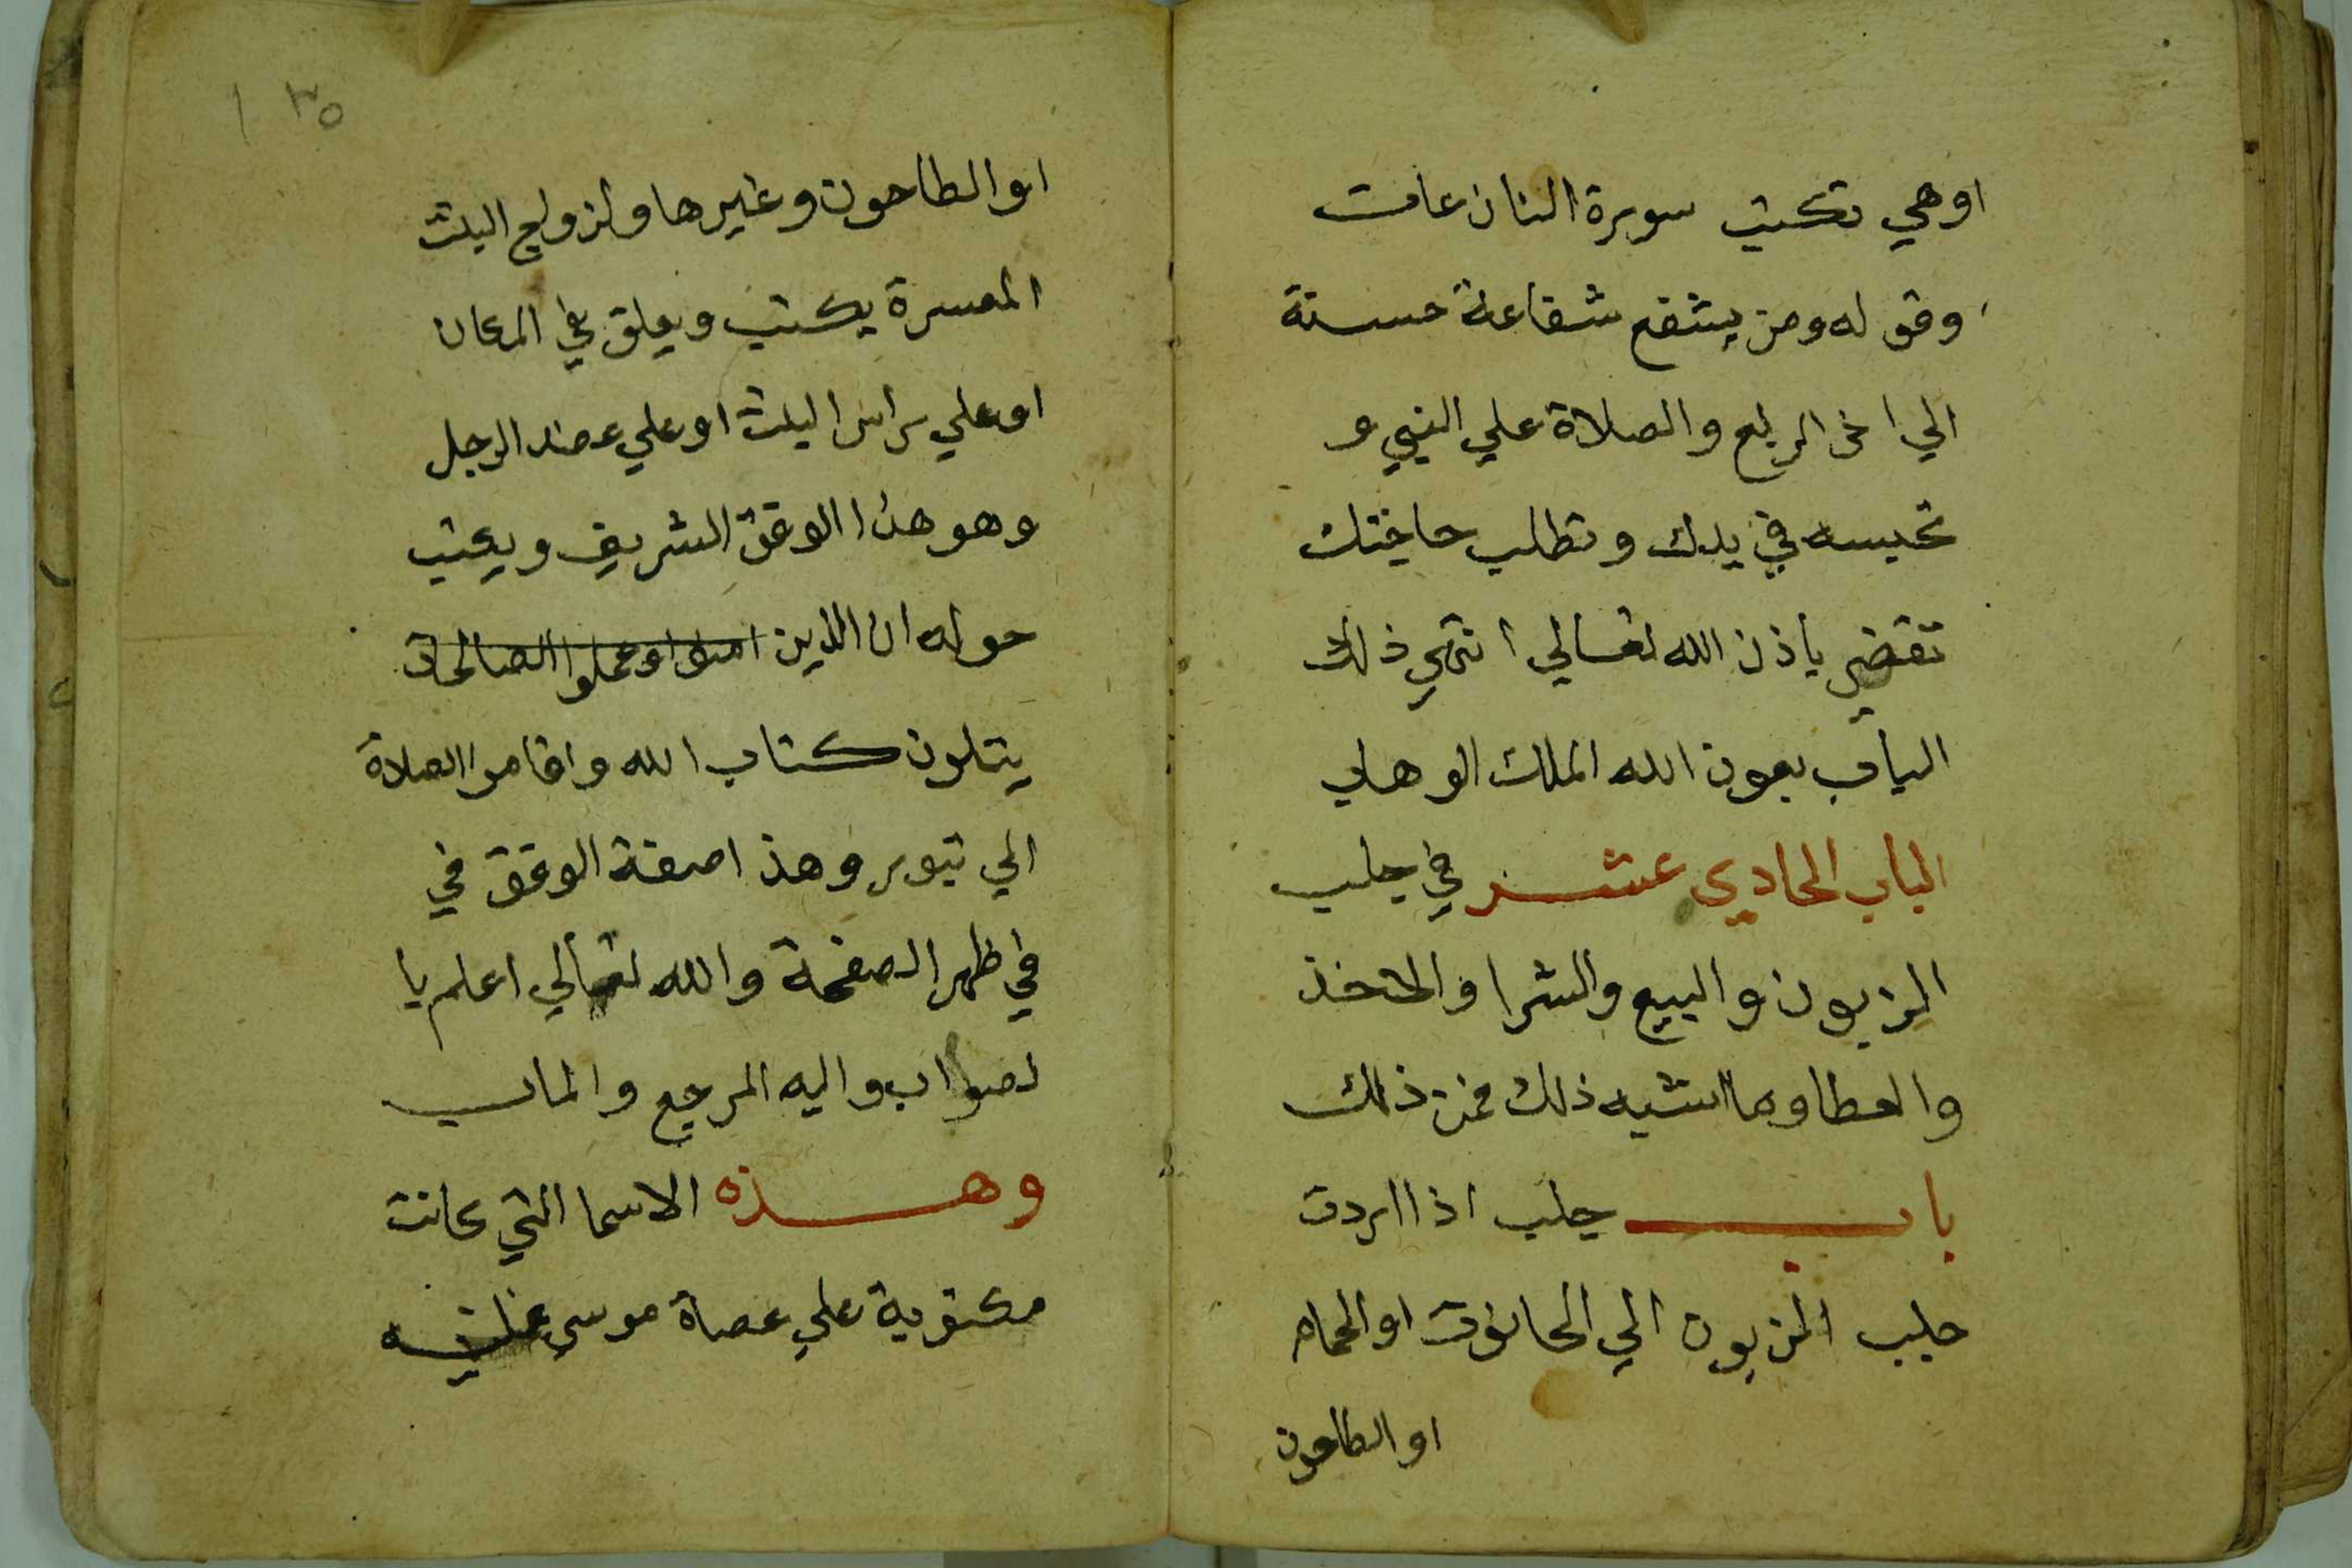 اوهي تكتب سورة النازعات
وقوله ومن يشفع شفاعة حسنة
الي اخر الربع والصلاة علي النبي و
تحبسه في يدك وتطلب حاجتك
تقضي باذن الله تعالي انتهي ذلك
الباب بعون الله الملك الوهاب
الباب الحادي عشر في جلب
الزبون والبيع والشرا والاخذ
والعطا وما اشبه ذلك فمن ذلك
باب جلب اذا اردت
جلب الزبون الي الحانوت او الحمام
او الطاحون
١٣٥
او الطاحون وغيرها ولزواج البنت
المعسرة يكتب ويعلق في المكان
او علي راس البنت او علي عضد الرجل
وهو هذا الوفق الشريف ويكتب
حوله ان الذين امنوا وعملوا الصالحات
يتلون كتاب الله واقاموا الصلاة
الي تبور وهذا صفة الوفق في
في ظهر الصفحة والله تعالي اعلم با
لصواب واليه المرجع والماب
وهذه الاسما التي كانت
مكتوبة علي عصاة موسي عليه